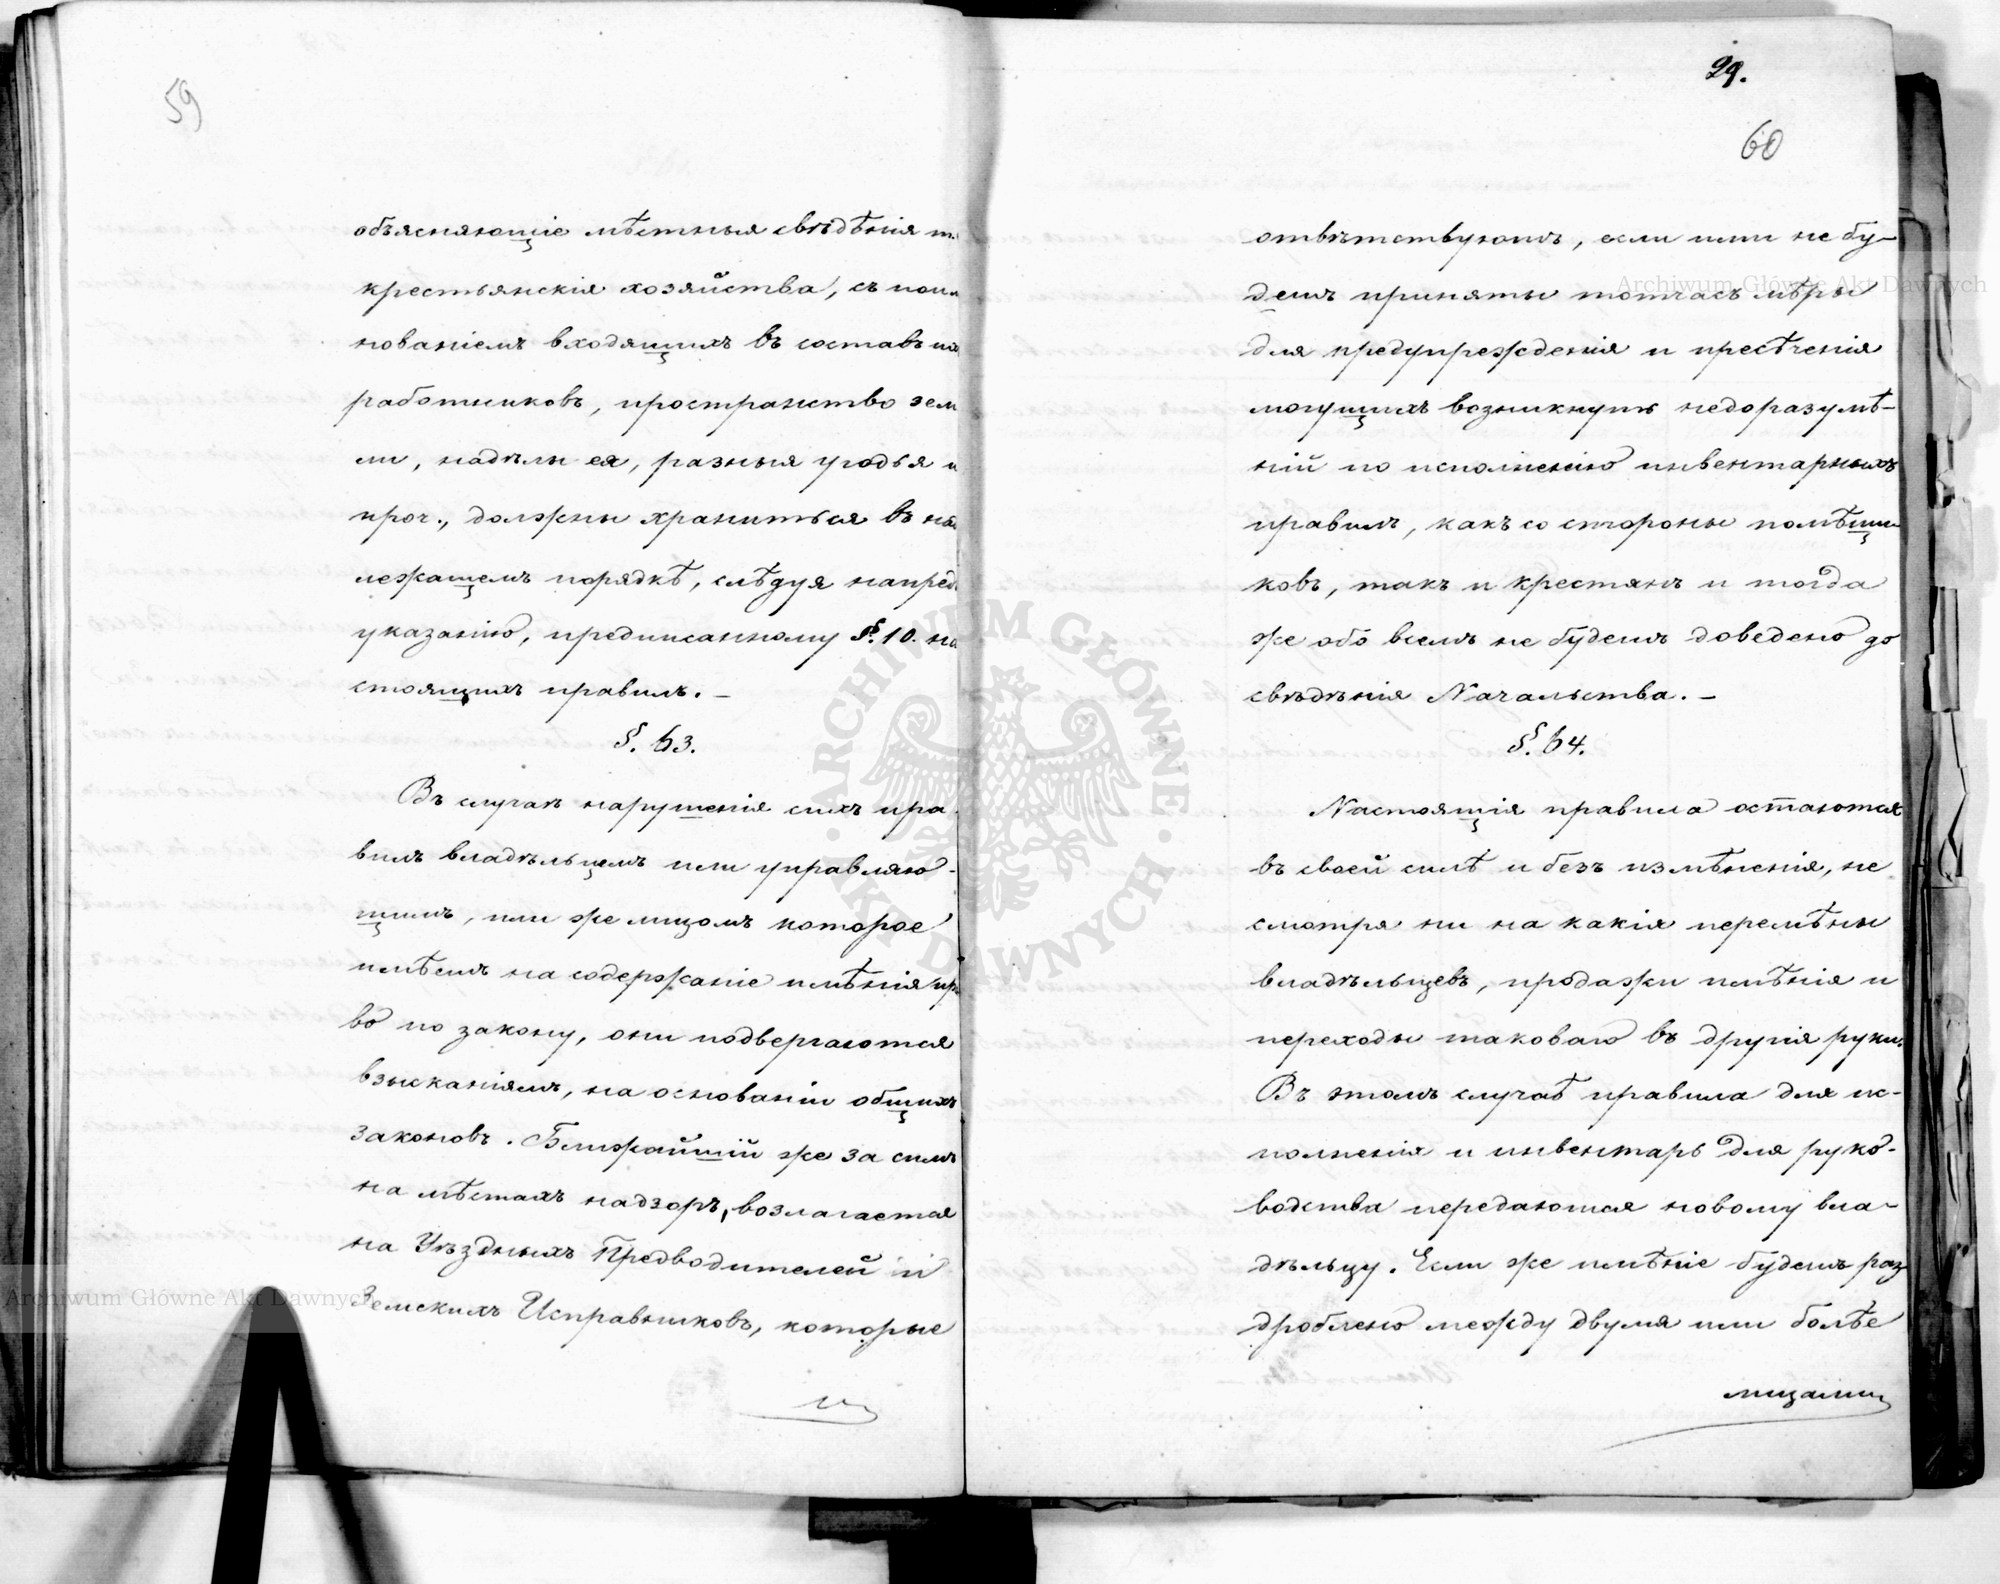 59
объясняющіе мѣстныя свѣдѣнія
крестьянскія хозяйства, съ поим
нованіемъ входящихъ въ составъ
работниковъ, пространство зем
ли, надѣлы ея, разныя угодья и
проч., должны храниться въ на
лежащемъ порядкѣ, слѣдуя напред
указанію, предписанному §. 10. на
стоящихъ правилъ. –
§. 63.
Въ случаѣ нарушенія сихъ пра
вилъ владѣльцемъ или управляю-
щимъ, или же лицомъ которое
имѣетъ на содержаніе имѣнія пр
во по закону, они подвергаются
взысканіямъ, на основаніи общихъ
законовъ. Ближайшій же за симъ
на мѣстахъ надзоръ, возлагается
на Уѣздныхъ Предводителей и
Земскихъ Исправниковъ, которые
29.
60
отвѣтствуютъ, если ими не бу-
детъ приняты тотчасъ мѣры
для предупрежденія и пресѣченія
могущихъ возникнуть недоразумѣ-
ній по исполненію инвентарныхъ
правилъ, какъ со стороны помѣщи
ковъ, такъ и крестянъ и тогда
же обо всемъ не будетъ доведено до
свѣдѣнія Начальства. –
§. 64.
Настоящія правила остаются
въ своей силѣ и безъ измѣненія, не
смотря ни на какія перемѣны
владѣльцевъ, продажи имѣнія и
переходы таковаго въ другія руки.
Въ этомъ случаѣ правила для ис-
полненія и инвентарь для руко-
водства передаются новому вла-
дѣльцу. Если же имѣніе будетъ раз
дроблено между двумя или болѣе
лицами
Archiwum Główne Akt Dawnych
Archiwum Główne Akt Dawnych
ARCHIWUM GŁÓWNE · AKT DAWNYCH ·